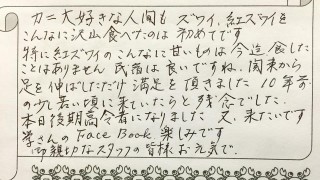 カニ大好きな人間も ズワイ、紅ズワイを
こんなに沢山食べたのは 初めてです
特に紅ズワイのこんなに甘いものは今迄食した
ことはありません 民宿は良いですね、関東から
足を伸ばしただけ満足を頂きました 10年前
の少し若い頃に来ていたらと残念でした。
本日後期高令者になりました 又、来たいです
学さんの Face Book 楽しみです
親切なスタッフの皆様お元気で。